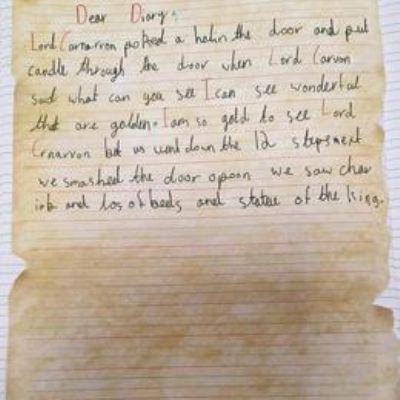 Dear Diary,
Lord Carnarvon poked a hol in the door and put
candle through the door when Lord Carvon
said what can you see I can see wonderful
that are golden. I am so gold to see Lord
Crnarvon let us went down the 12 steps next
we smashed the door opoon we saw char
iot and los of beds and statue of the King.